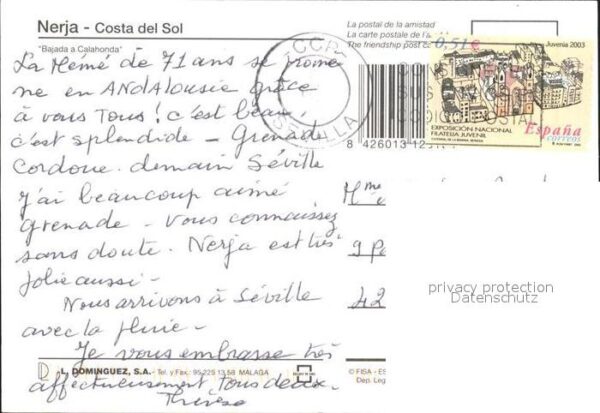 Nerja - Costa del Sol
"Bajada a Calahonda"
La postal de la amistad
La carte postale de l'a
The friendship post c
La Mémé de 71 ans se promè
ne en ANDALOUSIE grâce
à vous Tous! c'est beau,
c'est splendide - Grenade
Cordoue. demain Séville
J'ai beaucoup aimé
Grenade - Vous connaissez
sans doute. Nerja est très
jolie aussi -
Nous arrivons à Séville
avec la pluie -
Je vous embrasse très
affectueusement tous deux.
Thérèse
Juvenia 2003
0,51€
EXPOSICIÓN NACIONAL
FILATELIA JUVENIL
España
correos
CODIGO POSTAL
8 426013 12
Mme
9
42
privacy protection
Datenschutz
L. DOMINGUEZ, S.A. - Tel. y Fax.: 95-225 13 58 MALAGA
© FISA - ES
Dep. Leg